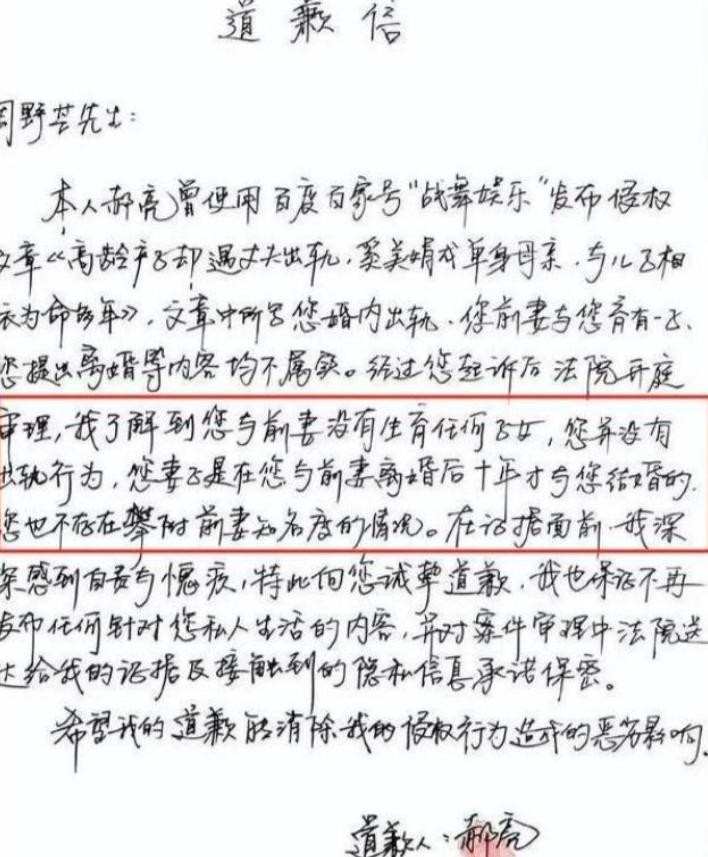 道歉信
周野芒先生:
本人郝亮曾使用百度百家号"战舞娱乐"发布侵权
文章《高龄产子却遇丈夫出轨,奚美娟成单身母亲,与儿子相
依为命多年》,文章中所写您婚内出轨、您前妻与您育有一子、
您提出离婚等内容均不属实。经过您起诉后法院开庭
审理,我了解到您与前妻没有生育任何子女,您并没有
出轨行为,您妻子是在您与前妻离婚后十年才与您结婚的,
您也不存在攀附前妻知名度的情况。在证据面前,我深
深感到自责与愧疚,特此向您诚挚道歉,我也保证不再
发布任何针对您私人生活的内容,并对案件审理中法院送
达给我的证据及接触到的隐私信息承诺保密。
希望我的道歉能消除我的侵权行为造成的恶劣影响。
道歉人:郝亮